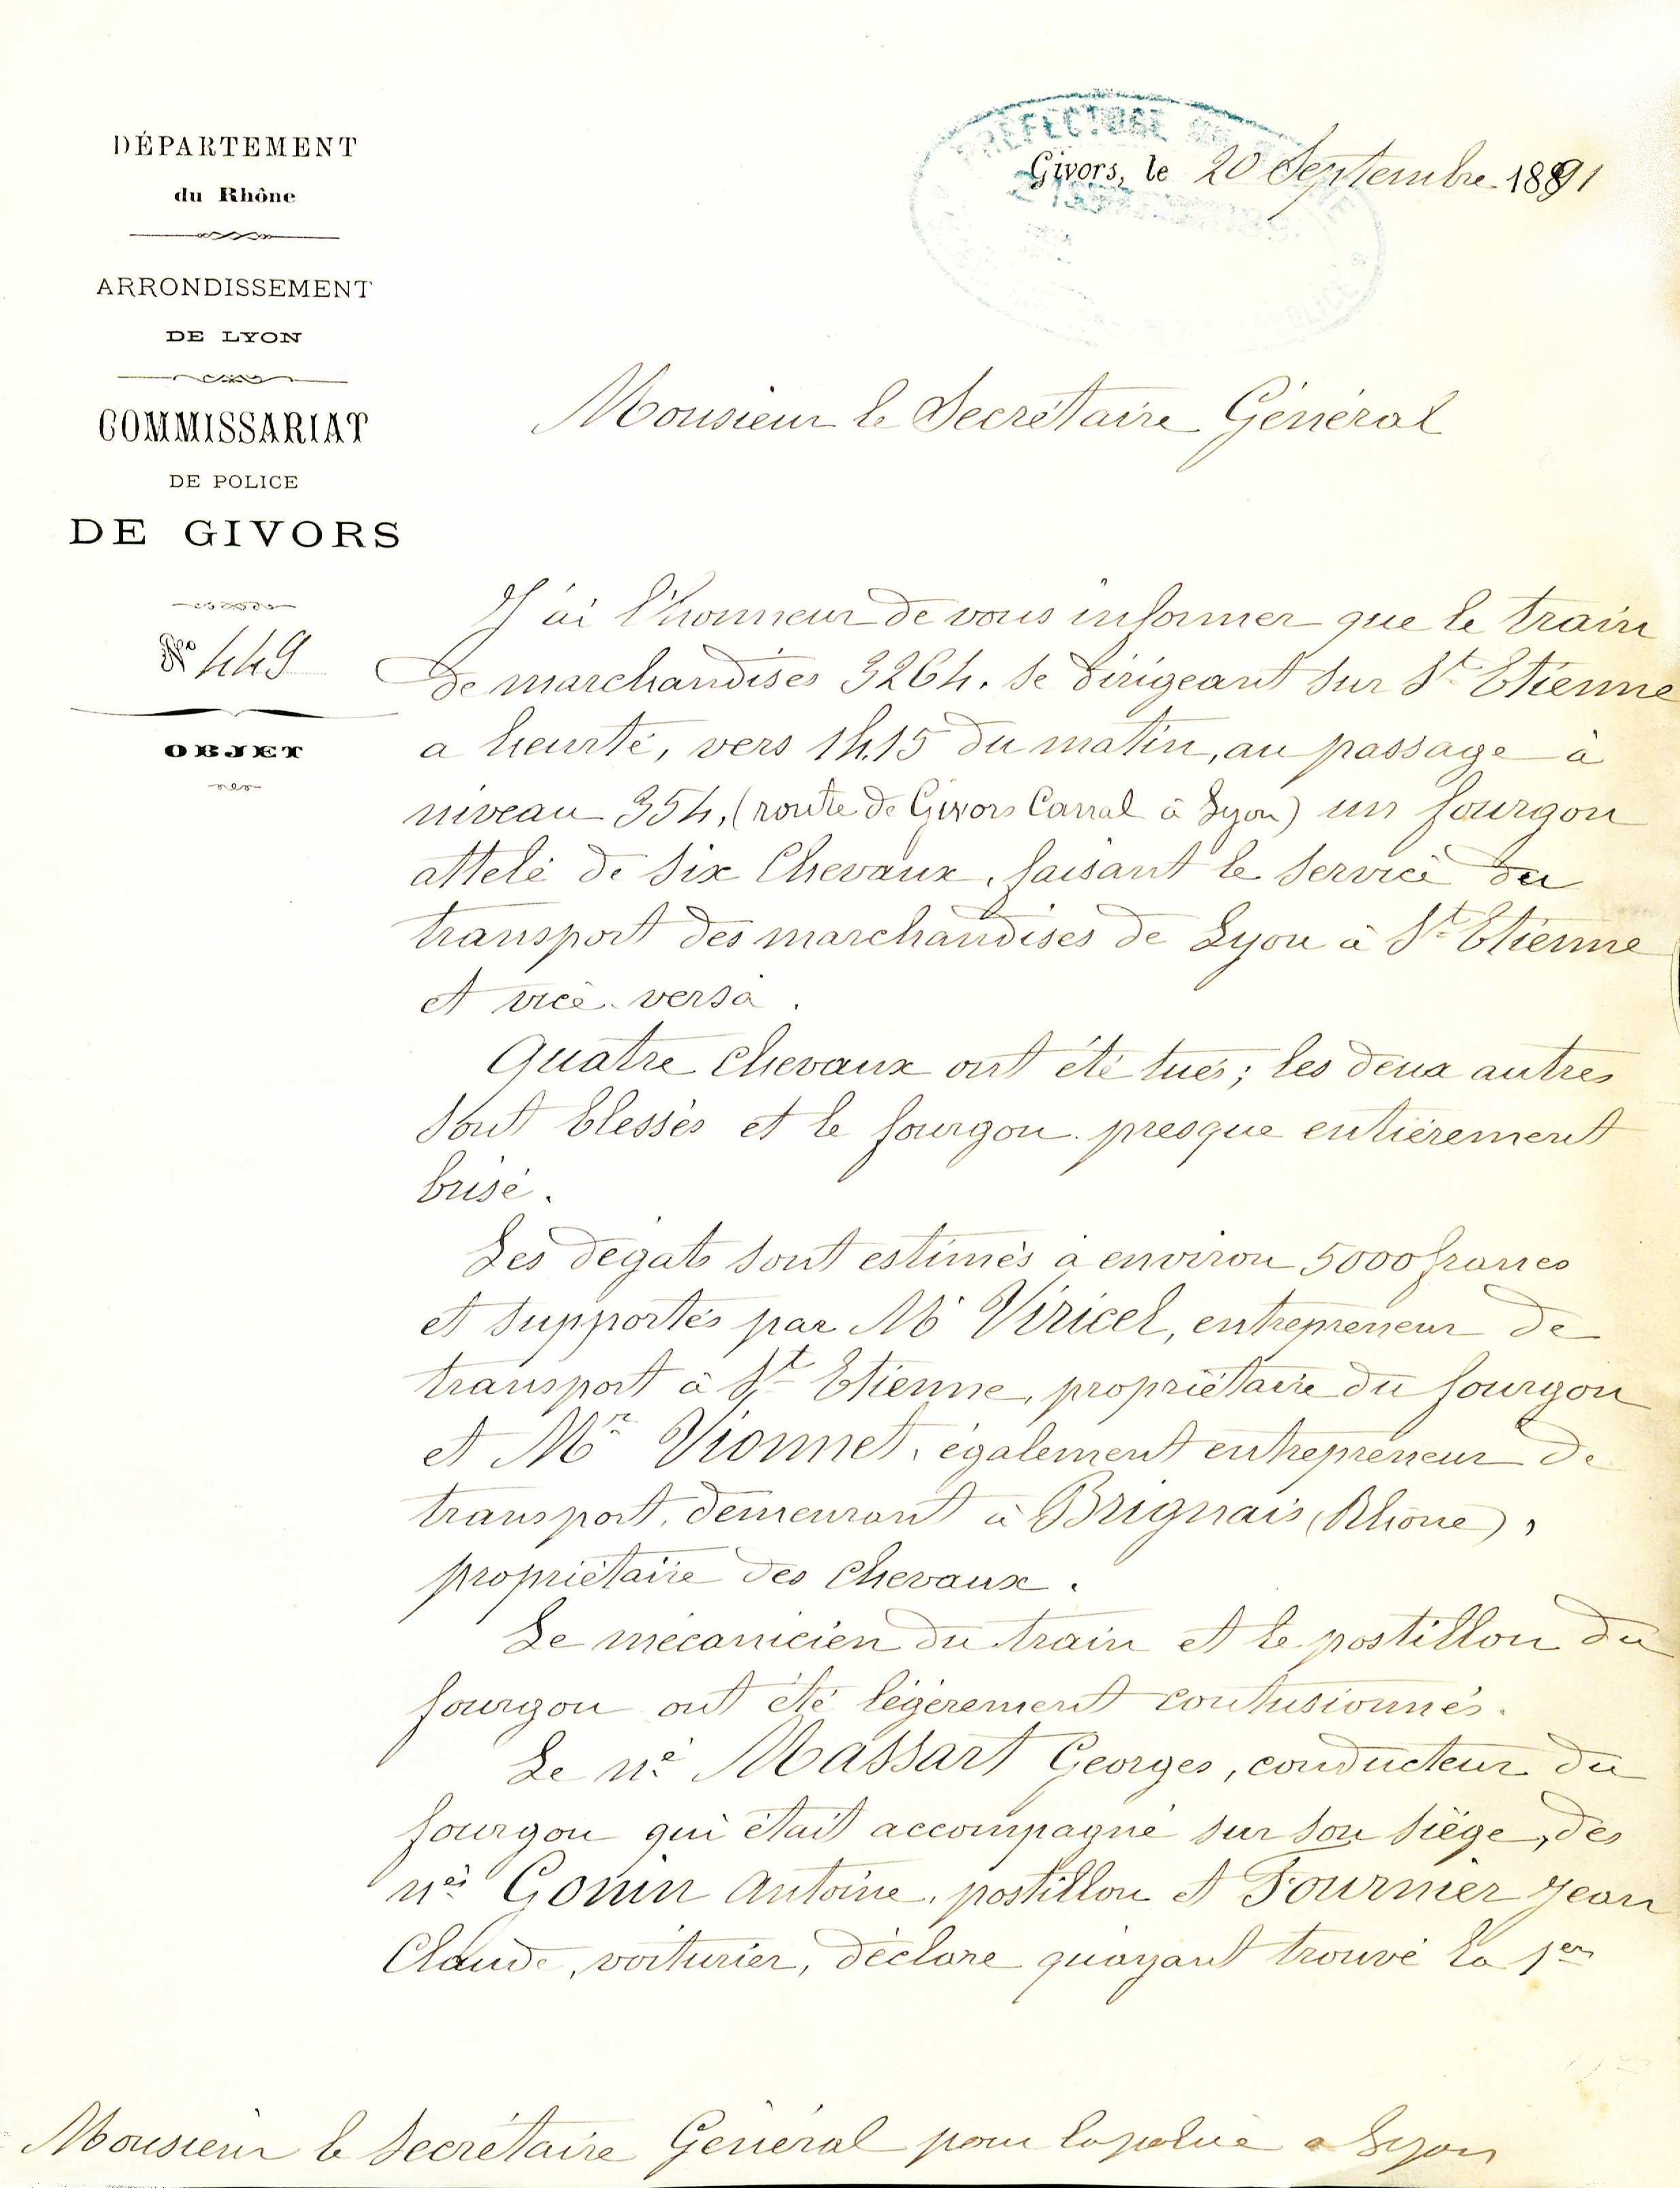 DÉPARTEMENT
du Rhône
ARRONDISSEMENT
DE LYON
COMMISSARIAT
DE POLICE
DE GIVORS
No 449
OBJET
PREFECTURE
Givors, le 20 Septembre 1891
Monsieur le Secrétaire Général
J'ai l'honneur de vous informer que le train
de marchandises 3264. se dirigeant sur St Etienne
a heurté, vers 1h.15 du matin, au passage à
niveau 354, (route de Givors Canal à Lyon) un fourgon
attelé de six Chevaux, faisant le service du
transport des marchandises de Lyon à St Etienne
et vice-versa.
Quatre Chevaux ont été tués; les deux autres
sont blessés et le fourgon presque entièrement
brisé.
Les dégats sont estimés à environ 5000 francs
et supportés par Mr Viricel, entrepreneur de
transport à St Etienne, propriétaire du fourgon
et Mr Vionnet, également entrepreneur de
transport, demeurant à Brignais (Rhône),
propriétaire des Chevaux.
Le mécanicien du train et le postillon du
fourgon ont été légèrement contusionnés.
Le né Massart Georges, conducteur du
fourgon qui était accompagné sur son siège, des
nés Gonin Antoine, postillon et Fournier Jean
Claude, voiturier, déclare qu'ayant trouvé la 1er
Monsieur le Secrétaire Général pour la police à Lyon